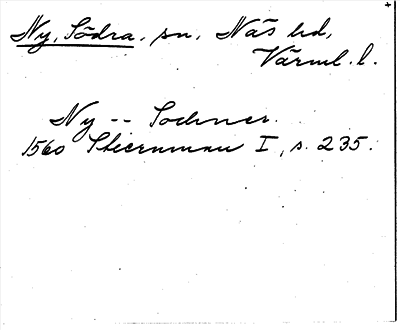 Ny, Södra, sn, Näs hd,
Värml. l.
Ny -- Sochner.
1560 Stiernman I, s. 235.